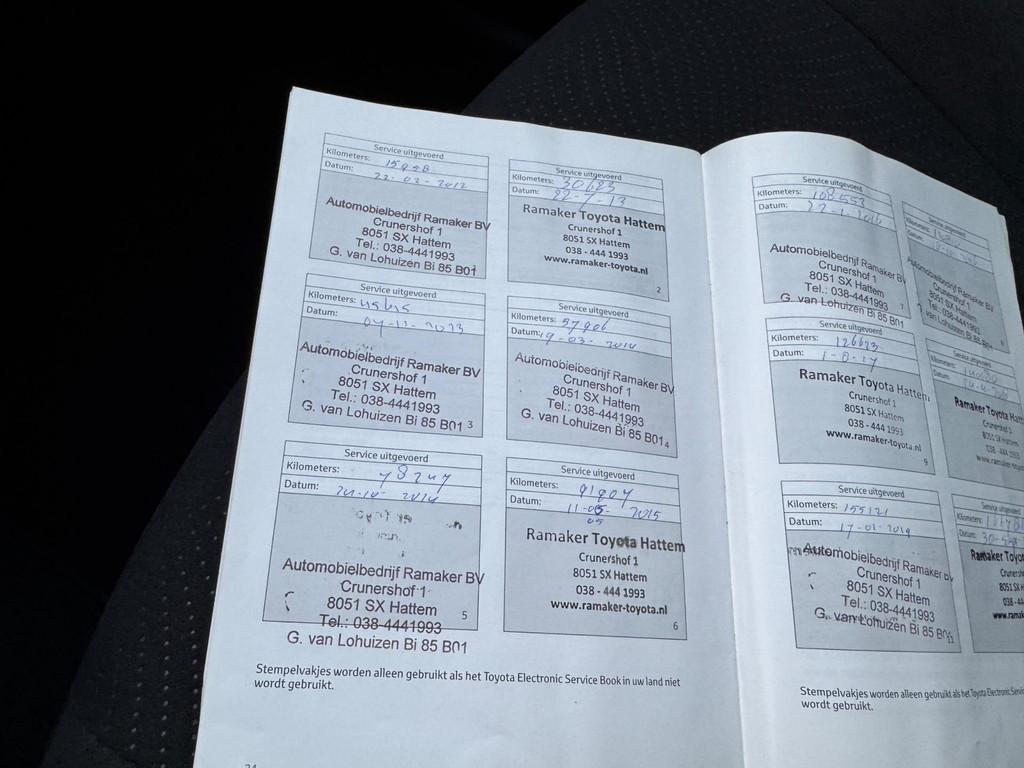 Service uitgevoerd
Kilometers: 15958
Datum: 22-02-2012
Automobielbedrijf Ramaker BV
Crunershof 1
8051 SX Hattem
Tel.: 038-4441993
G. van Lohuizen Bi 85 B01
1
Service uitgevoerd
Kilometers: 30623
Datum: 22-7-13
Ramaker Toyota Hattem
Crunershof 1
8051 SX Hattem
038 - 444 1993
www.ramaker-toyota.nl
2
Service uitgevoerd
Kilometers:
Datum: 04-11-2013
Automobielbedrijf Ramaker BV
Crunershof 1
8051 SX Hattem
Tel.: 038-4441993
G. van Lohuizen Bi 85 B01
3
Service uitgevoerd
Kilometers: 57906
Datum: 19-03-2014
Automobielbedrijf Ramaker BV
Crunershof 1
8051 SX Hattem
Tel.: 038-4441993
G. van Lohuizen Bi 85 B01
4
Service uitgevoerd
Kilometers: 78247
Datum:
Automobielbedrijf Ramaker BV
Crunershof 1
8051 SX Hattem
Tel.: 038-4441993
G. van Lohuizen Bi 85 B01
5
Service uitgevoerd
Kilometers: 91907
Datum: 11-05-2015
05
Ramaker Toyota Hattem
Crunershof 1
8051 SX Hattem
038 - 444 1993
www.ramaker-toyota.nl
6
Stempelvakjes worden alleen gebruikt als het Toyota Electronic Service Book in uw land niet
wordt gebruikt.
Service uitgevoerd
Kilometers: 108553
Datum: 22-1-2016
Automobielbedrijf Ramaker BV
Crunershof 1
8051 SX Hattem
Tel.: 038-4441993
G. van Lohuizen Bi 85 B01
7
Automobielbedrijf Ramaker BV
Crunershof 1
8051 SX Hattem
Tel.: 038-4441993
van Lohuizen Bi 85 B01
8
Service uitgevoerd
Kilometers: 126623
Datum: 1-8-17
Ramaker Toyota Hattem
Crunershof 1
8051 SX Hattem
038 - 444 1993
www.ramaker-toyota.nl
9
Service uitgevoerd
Ramaker Toyota Hatt
Crunershof 1
8051 SX Hattem
038 - 444 1993
Service uitgevoerd
Kilometers: 155121
Datum: 17-01-2019
Automobielbedrijf Ramaker BV
Crunershof 1
8051 SX Hattem
Tel.: 038-4441993
G. van Lohuizen Bi 85 B01
11
Service uitgevoerd
Kilometers:
Datum:
Ramaker Toyot
Stempelvakjes worden alleen gebruikt als het Toyota Electronic
wordt gebruikt.